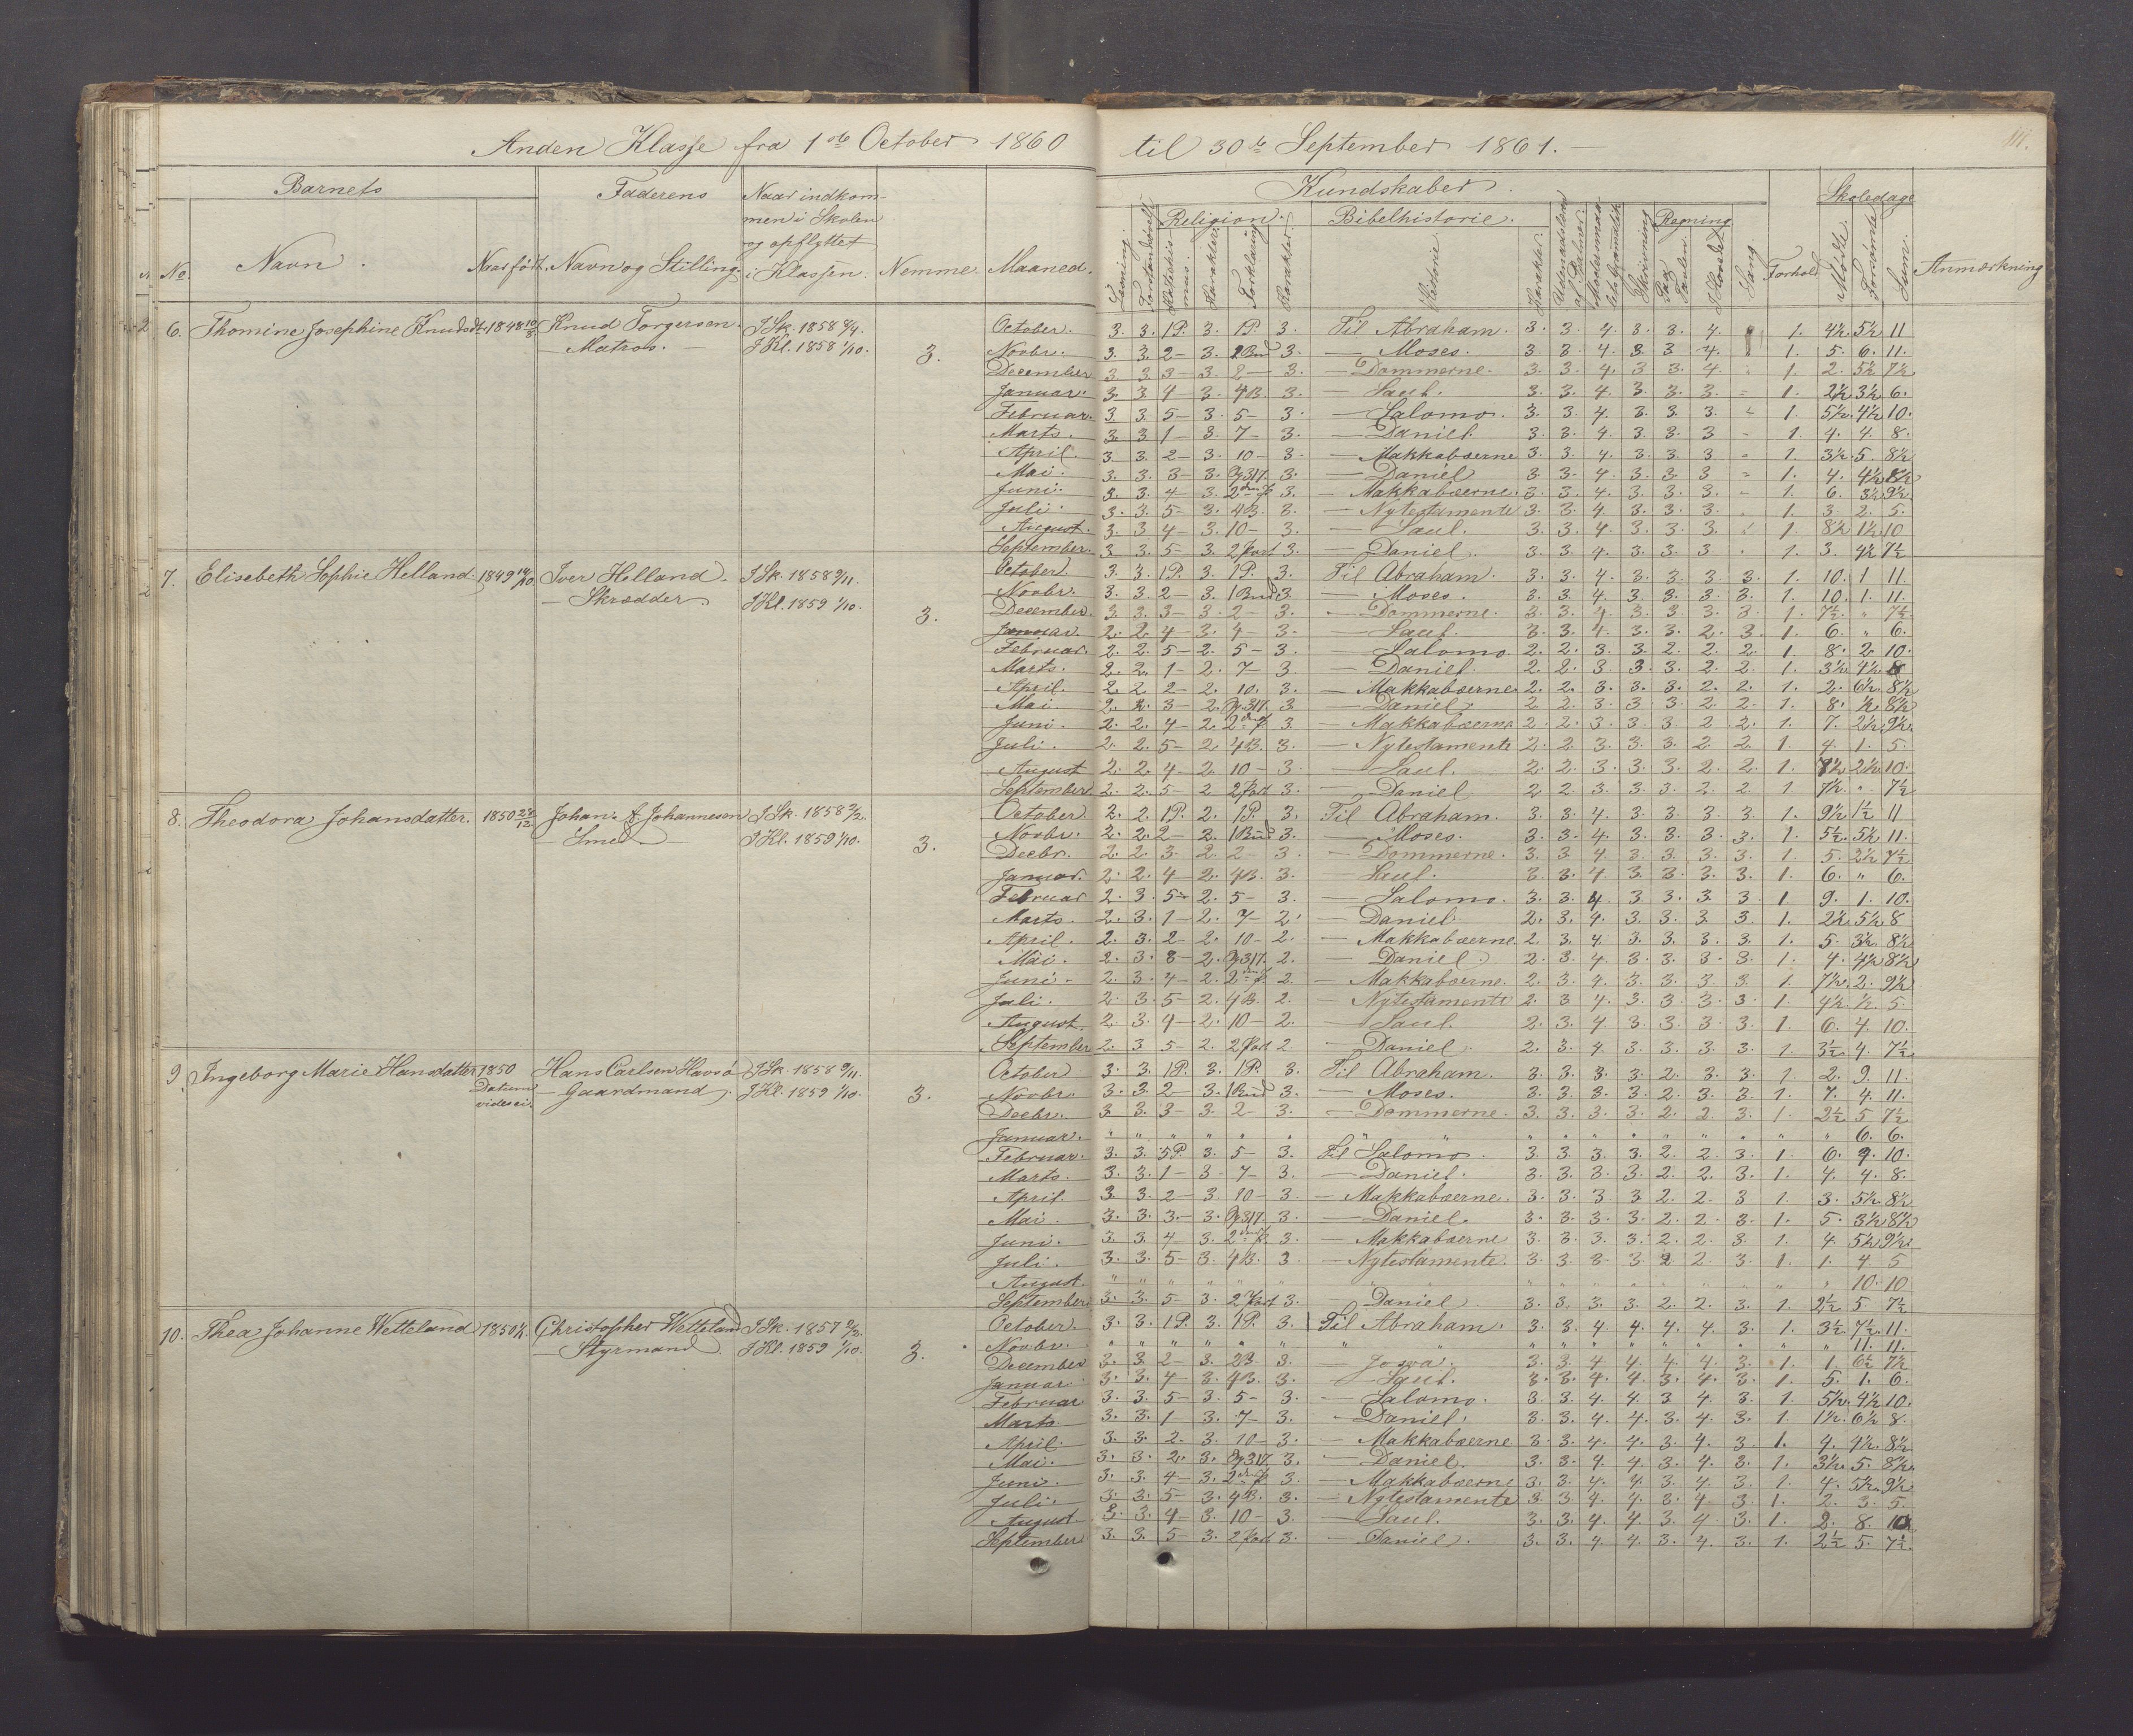 Anden Klasse fra 1ste October 1860 til 30te September 1861. —
111.
Barnets Faderens Naar indkom- Kundskaber. Skoledage
men i Skolen Religion. Bibelhistorie. Regning
og opflyttet
No. Navn. Naar født. Navn og Stilling. i Klassen. Nemme. Maaned. Læsning. Katechis- mus. Karakter. Forklaring Karakter. Historie Karakter. Skrivning Paa Tavlen. I Hovedet Sang. Forhold. Mødte. Forsømte Sum. Anmærkning
6. Thomine Josephine Knudsdtr. 1848 10/8 Knud Torgersen. I Sk. 1858 October. 3. 3. 1P. 3. 1P. 3. Til Abraham. 3. 3. 4. 3. 3. 4. " 1. 4½ 5½ 11
— Matros. — I Kl. 1858 1/10. 3. Novbr. 3. 3. 2- 3. 2 Bud 3. — Moses. 3. 3. 4. 3. 3 4. 1. 5. 6. 11.
December 3. 3. 3- 3. 2- 3. — Dommerne. 3. 3. 4. 3. 3. 4. 1. 2. 5½ 7½
Januar. 3. 3 4- 3. 4B. 3. — Saul. 3. 3. 4. 3. 3. 3. " 1. 2½ 3½ 6.
Februar. 3 3 5- 3. 5- 3. — Salomo. 3. 3. 4. 3. 3. 3. " 1. 5½ 4½ 10.
Marts. 3. 3 1- 3. 7- 3. — Daniel. 3. 3. 4. 3. 3. 3 " 1. 4. 4. 8.
April. 3 3. 2- 3. 10- 3. — Makkabæerne 3. 3. 4. 3. 3. 3 " 1. 3½ 5. 8½
Mai. 3. 3. 3- 3. 317. 3. — Daniel 3. 3. 4. 3. 3. 3 " 1. 4. 4½ 8½
Juni. 3. 3. 4- 3. 2den 3. — Makkabæerne. 3. 3. 4. 3. 3. 3. " 1. 6. 3½ 9½
Juli. 3. 3. 5- 3. 4B. 3. — Nytestamente 3. 3. 4 3. 3. 3. 1. 3. 2. 5.
August. 3. 3 4- 3. 10- 3. — Saul. 3. 3. 4. 3. 3. 3. 1. 8½ 1½ 10
September. 3 3. 5- 3. 2 3. — Daniel. 3. 3. 4. 3. 3. 3 " 1. 3. 4½ 7½
7. Elisabeth Sophie Helland. 1849 14/10 Iver Helland. I Sk. 1858 9/11. October. 3. 3. 1P. 3. 1P. 3. Til Abraham. 3. 3. 4. 3. 3. 3. 3. 1. 10. 1 11.
— Skrædder. I Kl. 1859 1/10. 3. Novbr. 3. 3 2- 3. 1 Bud 3 — Moses. 3. 3 4. 3. 3. 3. 3. 1. 10. 1. 11.
December. 3. 3. 3- 3. 2- 3. — Dommerne. 3. 3. 4. 3. 3. 3. 3. 1. 7½ " 7½
Januar. 2. 2. 4- 3. 4- 3. — Saul. 3. 3. 4. 3. 3. 2. 3. 1. 6. " 6.
Februar. 2. 2. 5- 2. 5- 3. — Salomo. 2. 2. 3. 3. 2. 2. 2. 1. 8. 2. 10.
Marts. 2. 2. 1- 2. 7- 3 — Daniel. 2. 2. 3. 3. 3. 2. 2. 1. 3½ 4½ 8
April. 2. 2. 2- 2. 10. 3. — Makkabæerne. 2. 2. 3. 3. 3. 2. 2. 1. 2. 6½ 8½
Mai 2. 2. 3- 2. 317. 3 — Daniel 2 2 3. 3 3. 2. 2. 1. 8. ½ 8½
Juni. 2. 2. 4- 2. 2den 3 — Makkabæerne 2. 2. 3. 3. 3 2 2. 1. 7. 2½ 9½
Juli. 2. 2. 5- 2. 4B. 3. — Nytestamente 2. 2. 3. 3. 3. 2. 2. 1. 4. 1. 5.
August 2. 2. 4- 2. 10- 3. — Saul. 2. 2. 3. 3. 3. 2. 2. 1. 7½ 2½ 10.
September 2. 2. 5- 2 2 3. — Daniel 2 2. 3. 3. 3. 2. 2. 1 7½ " 7½
8. Theodora Johansdatter. 1850 28/12 Johan. Johannesen I Sk. 1858 October 2. 2 1P. 2. 1P. 3. Til Abraham. 3. 3. 4. 3. 3. 3. 3. 1. 9½ 1½ 11
— Smed. — I Kl. 1859 1/10. 3. Novbr. 2. 2. 2- 2. 1 Bud 3. — Moses. 3. 3. 4. 3. 3. 3. 3. 1. 5½ 5½ 11.
Decbr. 2. 2. 3. 2. 2- 3. — Dommerne. 3. 3. 4. 3. 3. 3. 3. 1. 5. 2½ 7½
Januar. 2. 2. 4- 2. 4B. 3. — Saul. 3. 3. 4. 3. 3. 3. 3. 1. 6. " 6.
Februar 2. 3. 5- 2. 5- 3. — Salomo. 3. 3. 4 3 3. 3. 3 1 9. 1. 10.
Marts. 2. 3. 1- 2. 7- 2. — Daniel. 2. 3. 4. 3. 3. 3. 3. 1. 2½ 5½ 8
April. 2. 3. 2- 2. 10- 2. — Makkabæerne. 2. 3. 4. 3. 3. 3. 3. 1. 5. 3½ 8½
Mai. 2. 3. 3- 2. 317. 2. — Daniel. 2. 3. 4. 3. 3. 3. 3. 1. 4. 4½ 8½
Juni. 2. 3. 4- 2. 2den 2. — Makkabæerne. 2. 3. 4. 3. 3. 3. 3. 1. 7½ 2. 9½
Juli. 2. 3. 5- 2. 4B. 2. — Nytestamente 2. 3 4. 3. 3. 3. 3. 1. 4½ ½ 5.
August. 2. 3. 4- 2. 10- 2. — Saul. 2. 3. 4. 3. 3. 3. 3. 1. 6. 4. 10.
September 2. 3 5- 2. 2 2 — Daniel. 2. 3. 4. 3. 3. 3. 3. 1. 3½ 4. 7½
9. Ingeborg Marie Hansdatter 1850 Hans Carlsen Havsö I Sk. 1858 9/11. October 3. 3. 1P. 3. 1P. 3. Til Abraham. 3. 3. 3. 3. 2. 3. 3. 1. 2. 9. 11.
Datum — Gaardmand, I Kl. 1859 1/10. 3. Novbr. 3. 3 2- 3. 1 Bud 3. — Moses. 3. 3. 3. 3. 2. 3. 3. 1. 7. 4. 11.
vides ei. Decbr. 3 3. 3- 3. 2- 3. — Dommerne. 3. 3. 3. 3. 2. 2. 3. 1. 2½ 5 7½
Januar. " " " " " " " " " " " " " " " " 6. 6.
Februar. 3. 3. 5P. 3. 5- 3. Til Salomo. 3. 3. 3. 3. 2. 2. 3. 1. 6. 9. 10.
Marts. 3. 3. 1- 3- 7- 3. — Daniel. 3. 3. 3. 3. 2. 2. 3. 1. 4. 4. 8.
April. 3 3. 2- 3. 10- 3. — Makkabæerne. 3. 3. 3. 3 2. 2. 3 1. 3. 5½ 8½
Mai. 3. 3. 3.- 3. 317 3. — Daniel. 3. 3. 3. 3. 2. 2. 3. 1. 5. 3½ 8½
Juni. 3. 3. 4- 3. 2den 3. — Makkabæerne 3. 3. 3. 3. 2. 2. 3. 1. 4. 5½ 9½
Juli. 3. 3. 5- 3. 4B. 3 — Nytestamente. 3. 3. 3. 3. 2 2. 3. 1. 1. 4. 5
August. " " " " " " " " " " " " " " " " 10. 10
September. 3. 3. 5- 3. 2 3. — Daniel. 3. 3. 3. 3. 2. 2. 3. 1. 2½ 5. 7½
10. Thea Johanne Wetteland. 1850 Christopher Wetteland I Sk. 1857 October. 3. 3. 1P. 3. 1P. 3. Til Abraham. 3. 3. 4. 4. 4. 4. 3. 1. 3½ 7½ 11.
— Styrmand. I Kl. 1859 1/10. 3. Novbr. " " " " " " " " " " " " " " " " 11. 11.
December 3. 3 2- 3. 2B. 3. — Josva. 3. 3. 4. 4. 4. 4. 3. 1. 1. 6½ 7½
Januar. 3. 3. 4- 3. 4B. 3. — Saul. 3. 3. 4. 4. 3. 4. 3. 1. 5. 1. 6.
Februar 3. 3 5- 3. 5- 3. — Salomo. 3. 3. 4. 4. 3 4. 3. 1. 5½ 4½ 10.
Marts 3. 3. 1 3. 7- 3. — Daniel. 3. 3. 4. 4. 3. 4. 3. 1. 1½ 6½ 8.
April. 3. 3. 2- 3. 10- 3. — Makkabæerne 3. 3. 4. 4. 3. 4. 3. 1. 4. 4½ 8½
Mai. 3. 3. 2. 3. 317. 3. — Daniel. 3. 3. 4. 4. 3. 4. 3. 1. 3½ 5. 8½
Juni. 3. 3. 4- 3. 2den 3. — Makkabæerne 3. 3. 4. 4. 3. 4. 3. 1. 4. 5½ 9½
Juli. 3. 3. 5- 3. 4B. 3. — Nytestamente 3. 3. 4. 4. 3. 4. 3. 1. 2. 3. 5.
August. 3. 3. 4- 3. 10- 3. — Saul. 3. 3. 4. 4. 3. 4. 3. 1. 2. 8. 10
September 3. 3. 5- 3. 2 3. — Daniel. 3. 3. 4. 4. 3. 4. 3. 1. 2½ 5. 7½